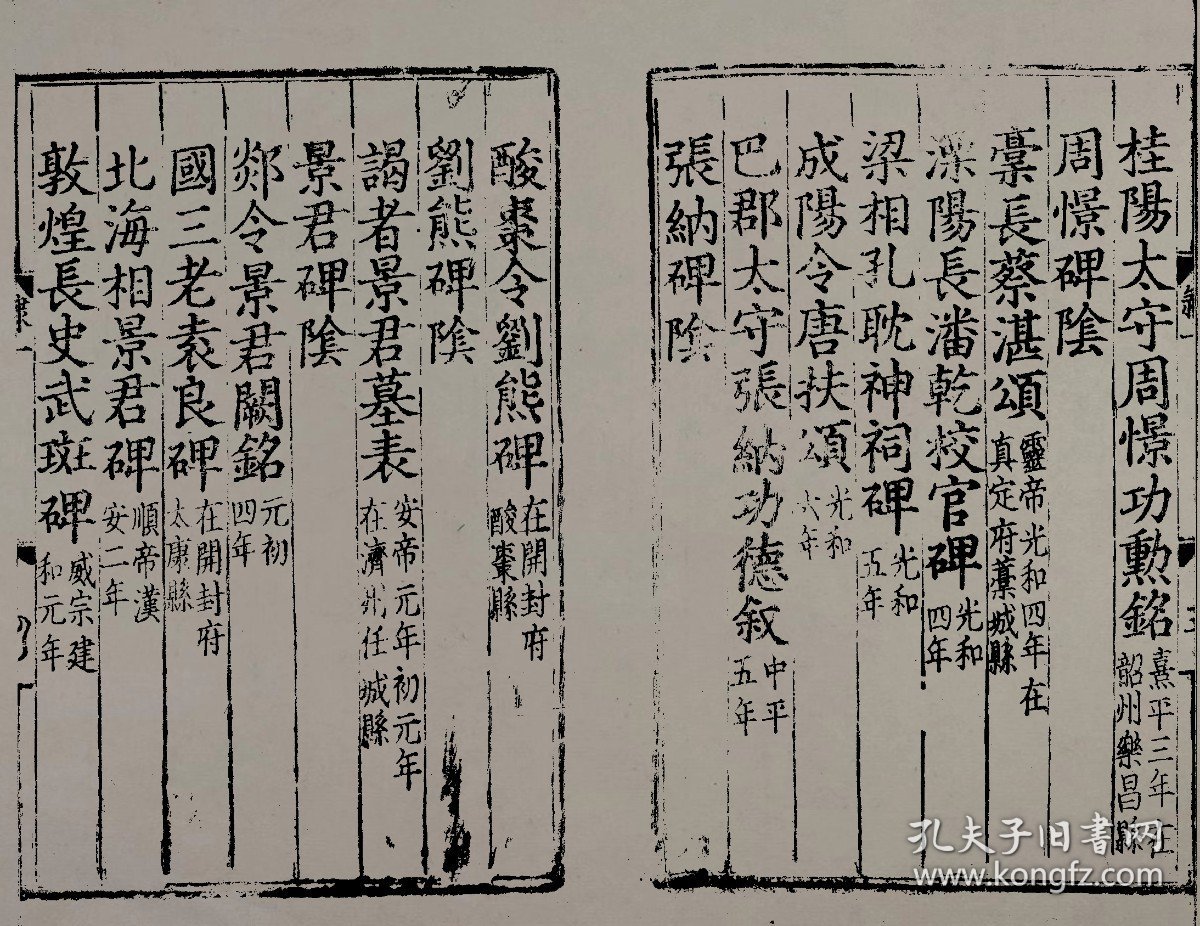 桂陽太守周憬功勲銘熹平三年在韶州樂昌縣
周憬碑陰
稾長蔡湛頌靈帝光和四年在真定府藁城縣
溧陽長潘乾挍官碑光和四年
梁相孔耽神祠碑光和五年
成陽令唐扶頌光和六年
巴郡太守張納功德叙中平五年
張納碑陰
酸棗令劉熊碑在開封府酸棗縣
劉熊碑陰
謁者景君墓表安帝元年初元年在濟州任城縣
景君碑陰
郯令景君闕銘元初四年
國三老袁良碑在開封府太康縣
北海相景君碑順帝漢安二年
敦煌長史武斑碑威宗建和元年
孔夫子旧书网
www.kongfz.com